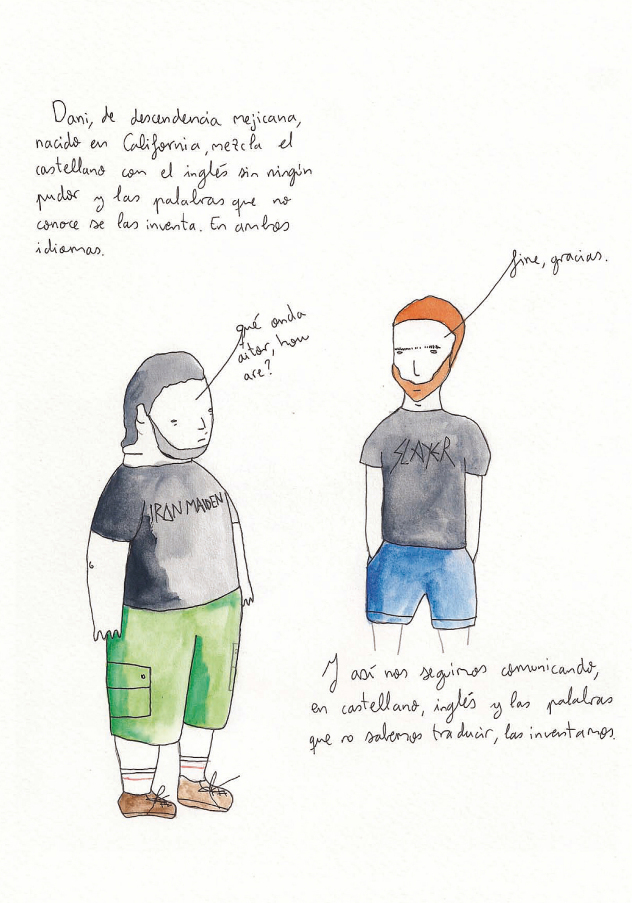 Dani, de descendencia mejicana,
nacido en California, mezcla el
castellano con el inglés sin ningún
pudor y las palabras que no
conoce se las inventa. En ambos
idiomas.
fine, gracias.
qué onda
aitor, how
are?
SLAYER
IRON MAIDEN
Y así nos seguimos comunicando,
en castellano, inglés y las palabras
que no sabemos traducir, las inventamos.